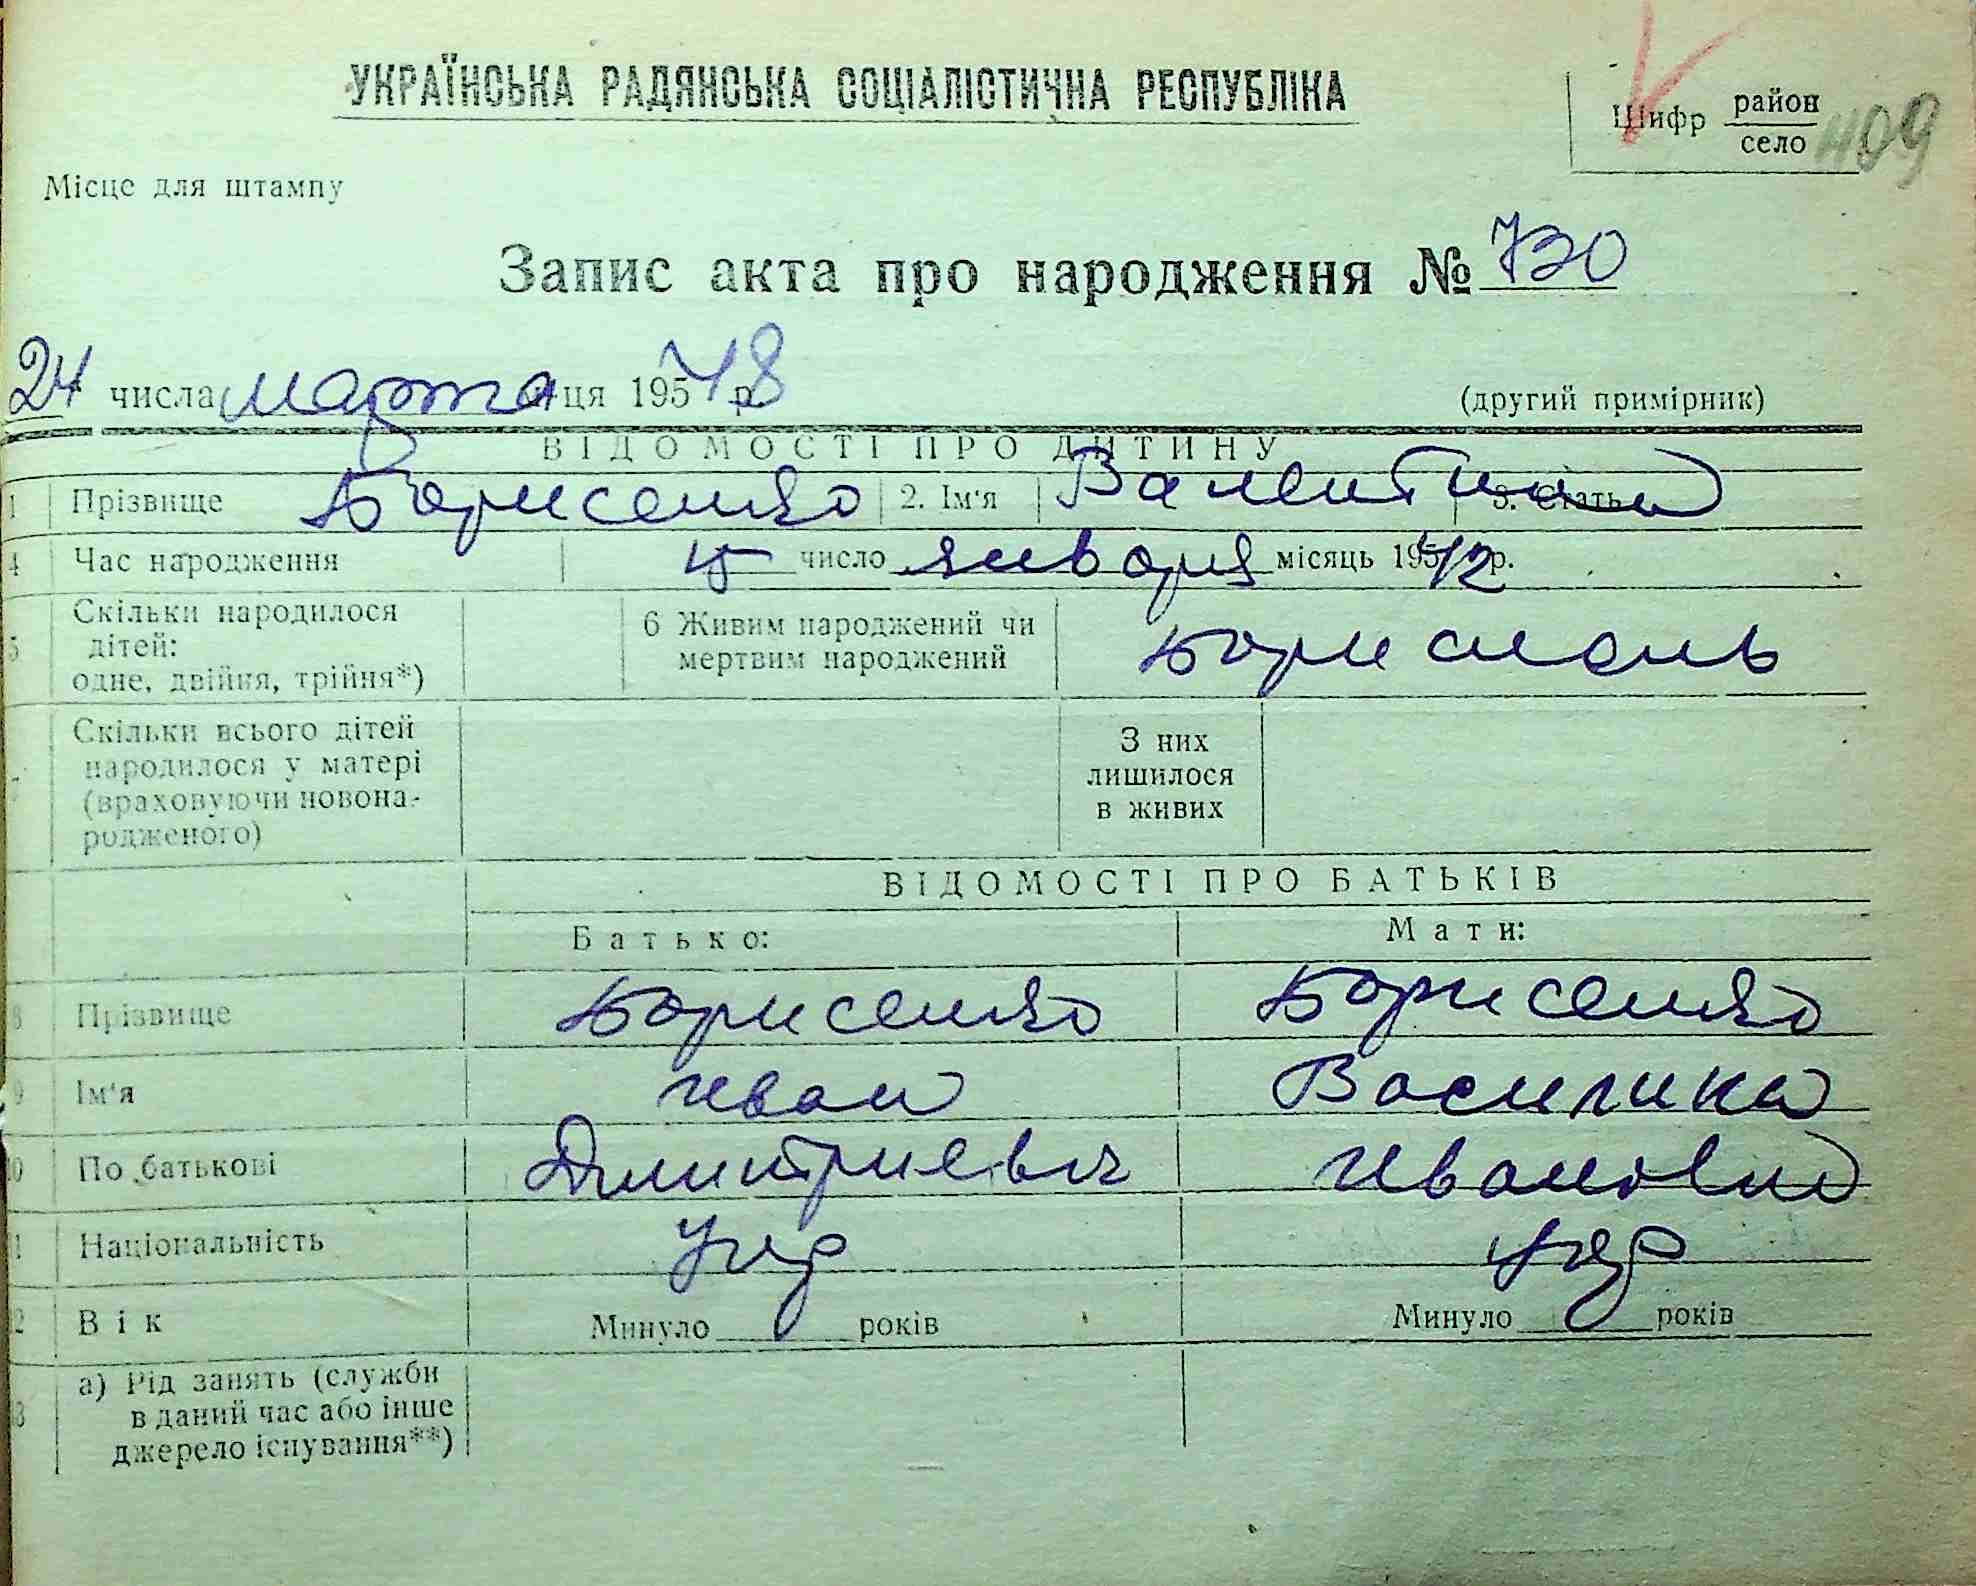 УКРАЇНСЬКА РАДЯНСЬКА СОЦІАЛІСТИЧНА РЕСПУБЛІКА
Шифр район
село 409
Місце для штампу
Запис акта про народження № 730
24 числа марта ця 195 48 р
(другий примірник)
ВІДОМОСТІ ПРО ДИТИНУ
1 Прізвище Борисенко 2. Ім'я Валентина 3. Стать
4 Час народження 15 число января місяць 195 42 р.
5 Скільки народилося
дітей:
одне, двійня, трійня*)
6 Живим народжений чи
мертвим народжений
Скільки всього дітей
народилося у матері
(враховуючи новона-
родженого)
З них
лишилося
в живих
ВІДОМОСТІ ПРО БАТЬКІВ
Батько: Мати:
8 Прізвище Борисенко Борисенко
9 Ім'я Иван Василика
10 По батькові Дмитриевич Ивановна
11 Національність Укр Укр
12 Вік Минуло років Минуло років
13 а) Рід занять (служби
в даний час або інше
джерело існування**)